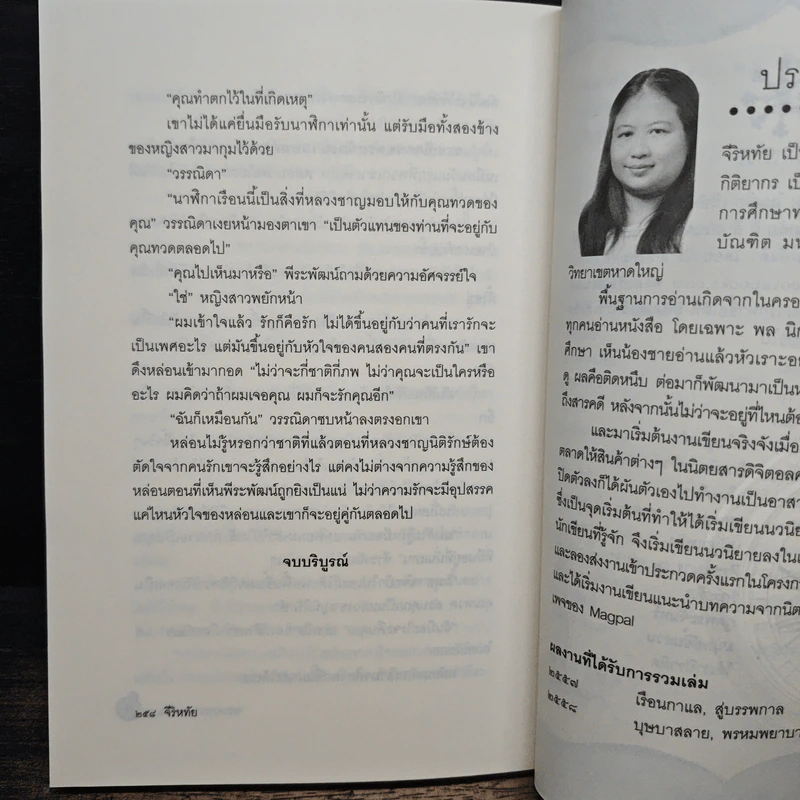 “คุณทำตกไว้ในที่เกิดเหตุ”
เขาไม่ได้แค่ยื่นมือรับนาฬิกาเท่านั้น แต่รับมือทั้งสองข้าง
ของหญิงสาวมากุมไว้ด้วย
“วรรณิดา”
“นาฬิกาเรือนนี้เป็นสิ่งที่หลวงชาญมอบให้กับคุณทวดของ
คุณ” วรรณิดาเงยหน้ามองตาเขา “เป็นตัวแทนของท่านที่จะอยู่กับ
คุณทวดตลอดไป”
“คุณไปเห็นมาหรือ” พีระพัฒน์ถามด้วยความอัศจรรย์ใจ
“ใช่” หญิงสาวพยักหน้า
“ผมเข้าใจแล้ว รักก็คือรัก ไม่ได้ขึ้นอยู่กับว่าคนที่เรารักจะ
เป็นเพศอะไร แต่มันขึ้นอยู่กับหัวใจของคนสองคนที่ตรงกัน” เขา
ดึงหล่อนเข้ามากอด “ไม่ว่าจะกี่ชาติกี่ภพ ไม่ว่าคุณจะเป็นใครหรือ
อะไร ผมคิดว่าถ้าผมเจอคุณ ผมก็จะรักคุณอีก”
“ฉันก็เหมือนกัน” วรรณิดาซบหน้าลงตรงอกเขา
หล่อนไม่รู้หรอกว่าชาติที่แล้วตอนที่หลวงชาญนิติรักษ์ต้อง
ตัดใจจากคนรักเขาจะรู้สึกอย่างไร แต่คงไม่ต่างจากความรู้สึกของ
หล่อนตอนที่เห็นพีระพัฒน์ถูกยิงเป็นแน่ ไม่ว่าความรักจะมีอุปสรรค
แค่ไหนหัวใจของหล่อนและเขาก็จะอยู่คู่กันตลอดไป
จบบริบูรณ์
๒๕๘ จีริหทัย
ปร
จีริหทัย เป็
กิติยากร เป็
การศึกษาท
บัณฑิต มห
วิทยาเขตหาดใหญ่
พื้นฐานการอ่านเกิดจากในครอ
ทุกคนอ่านหนังสือ โดยเฉพาะ พล นิก
ศึกษา เห็นน้องชายอ่านแล้วหัวเราะอย
ดู ผลคือติดหนึบ ต่อมาก็พัฒนามาเป็นห
ถึงสารคดี หลังจากนั้นไม่ว่าจะอยู่ที่ไหนต้อ
และมาเริ่มต้นงานเขียนจริงจังเมื่อ
ตลาดให้สินค้าต่างๆ ในนิตยสารดิจิตอลค
ปิดตัวลงก็ได้ผันตัวเองไปทำงานเป็นอาสา
ซึ่งเป็นจุดเริ่มต้นที่ทำให้ได้เริ่มเขียนนวนิย
นักเขียนที่รู้จัก จึงเริ่มเขียนนวนิยายลงในเ
และลองส่งงานเข้าประกวดครั้งแรกในโครงกา
และได้เริ่มงานเขียนแนะนำบทความจากนิต
เพจของ Magpal
ผลงานที่ได้รับการรวมเล่ม
๒๕๕๗ เรือนกาแล, สู่บรรพกาล
๒๕๕๘ บุษบาสลาย, พรหมพยาบา